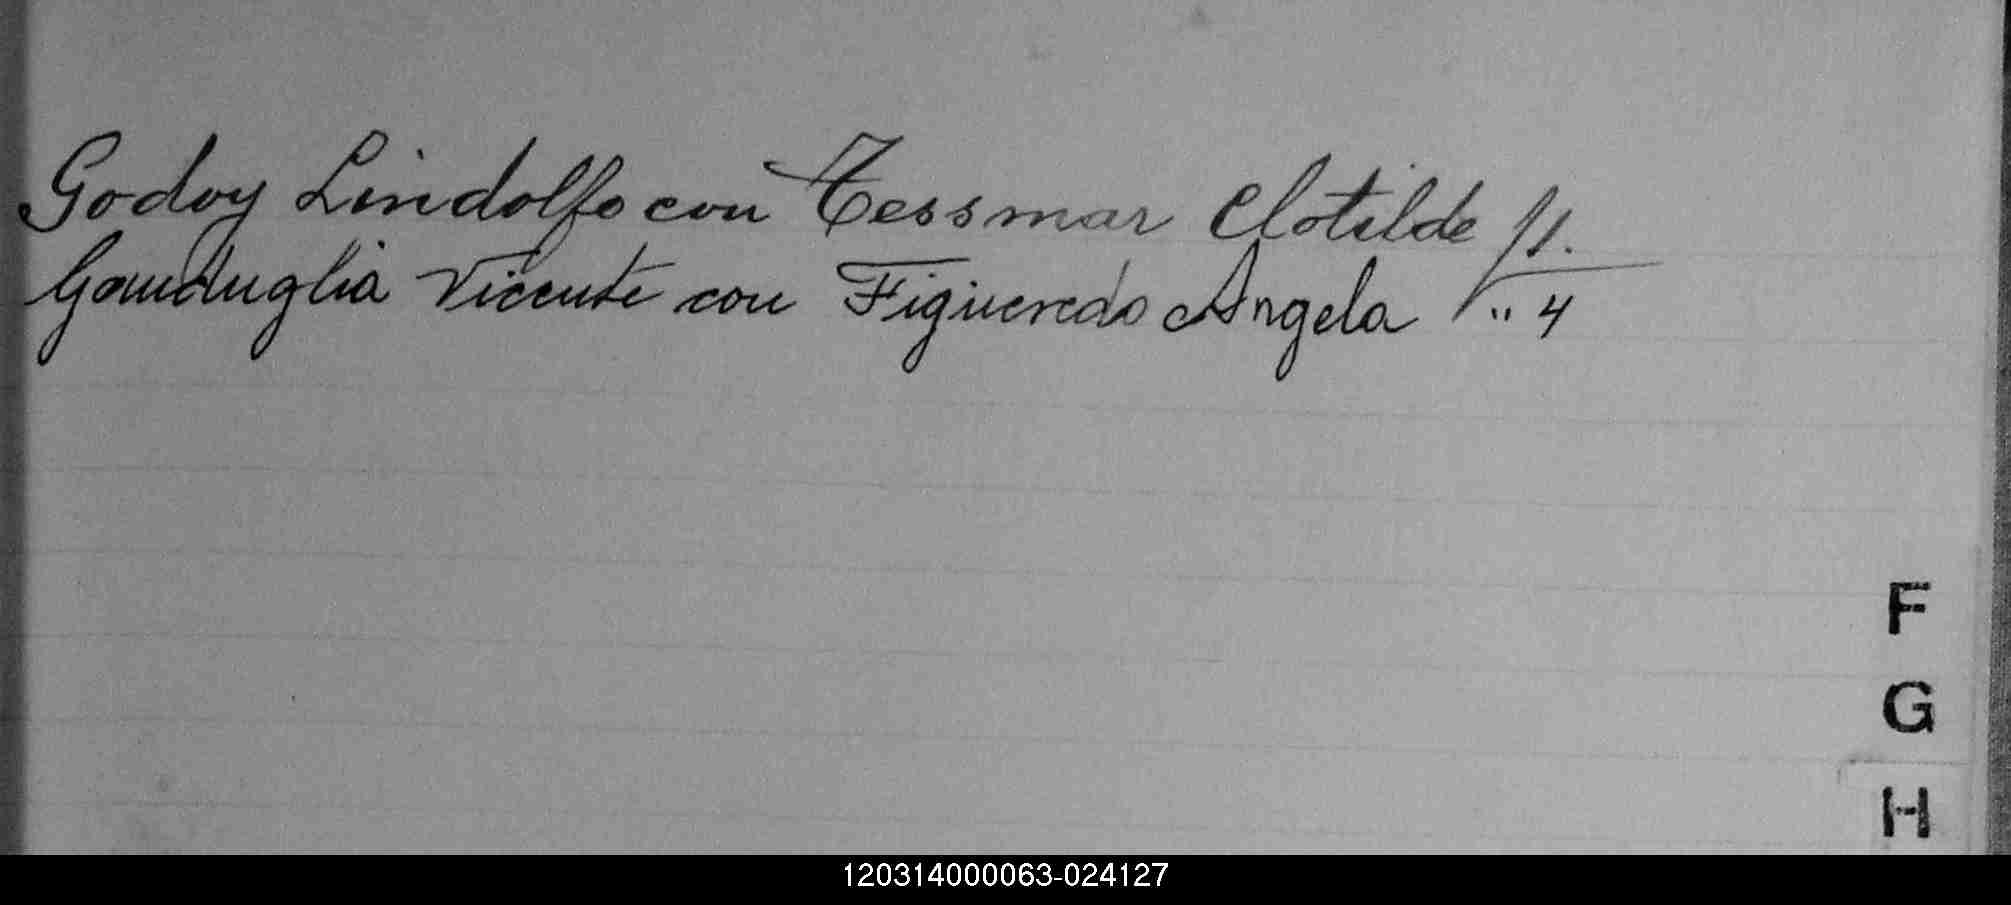 Godoy Lindolfo con Tessmar Clotilde f1.
Vicente con Figueredo Angela " 4
F
G
H
120314000063-024127